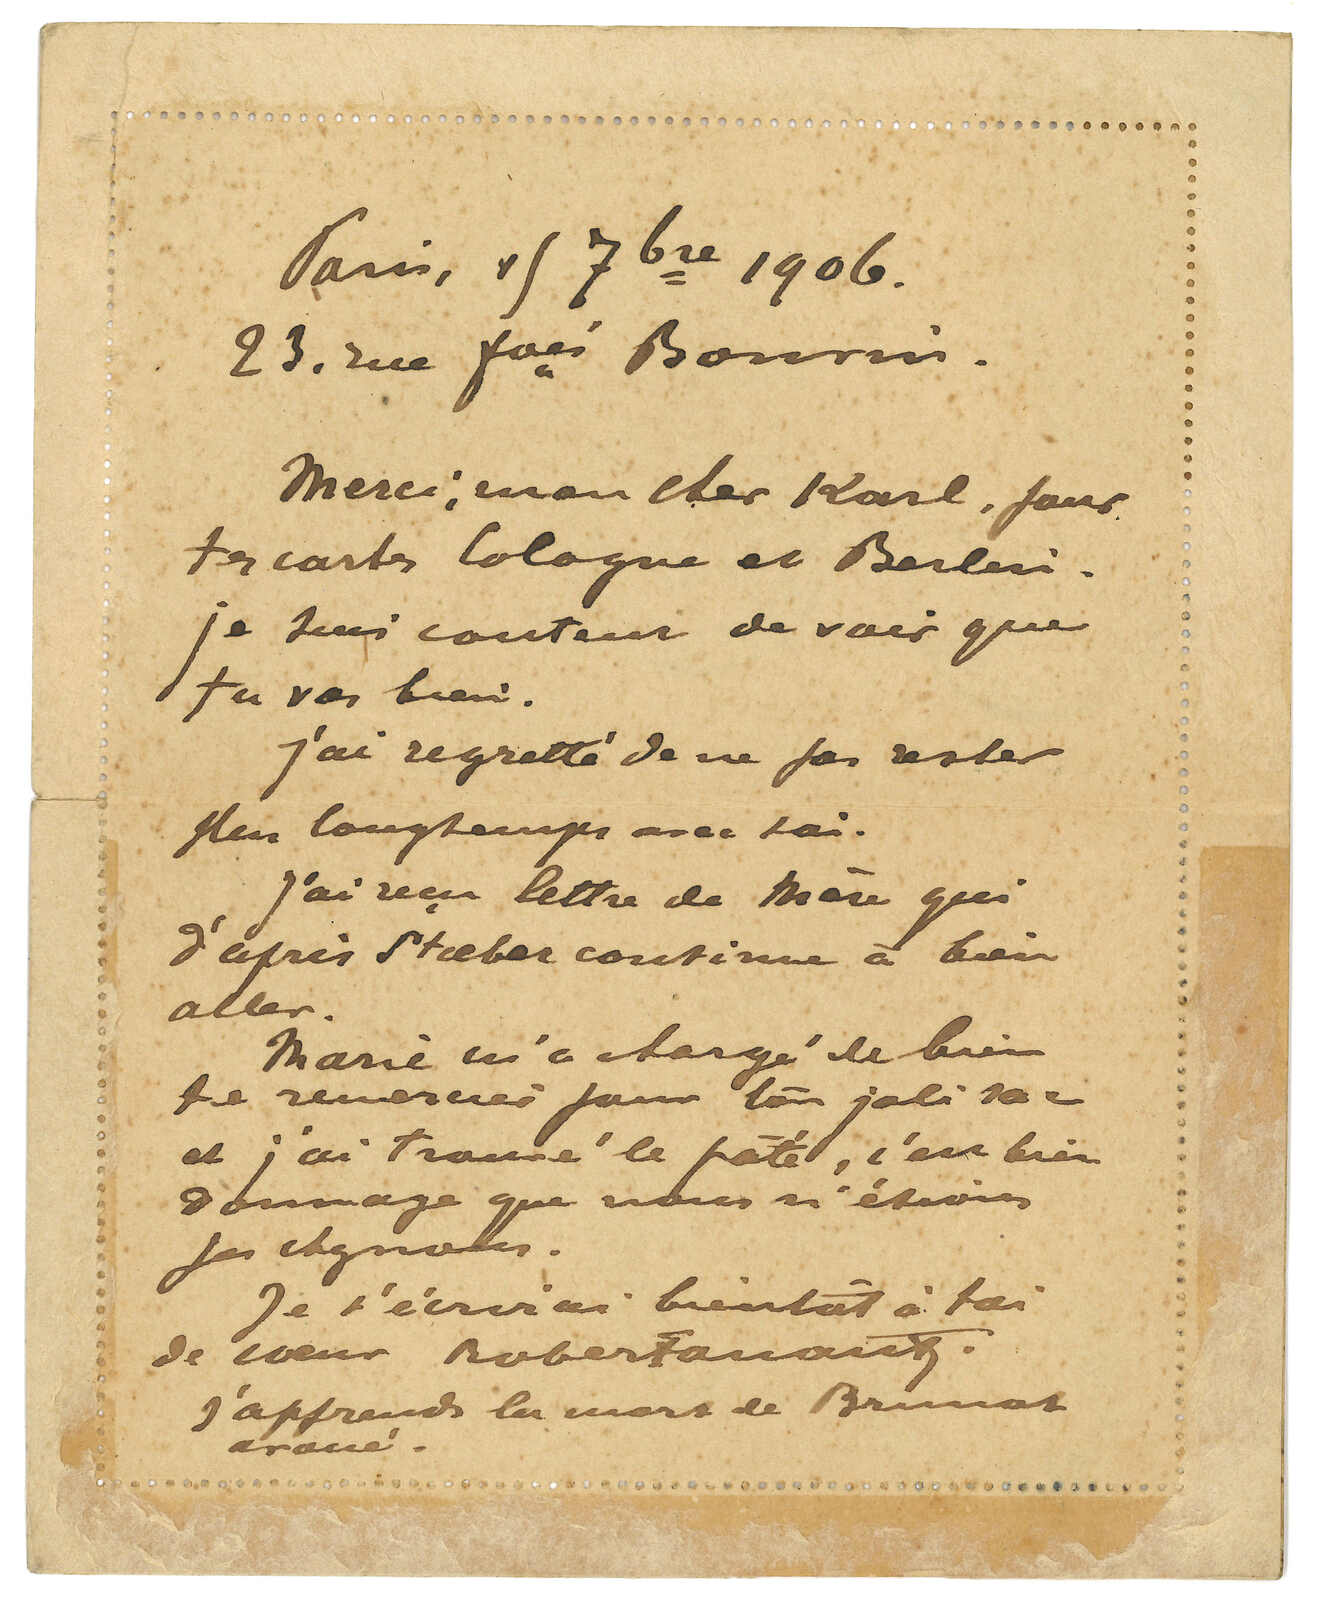 Paris, 15 7bre 1906.
23, rue Fçois Bonvin.
Merci, mon cher Karl, pour
tes cartes Cologne et Berlin.
je suis content de voir que
tu vas bien.
J'ai regretté de ne pas rester
plus longtemps avec toi.
J'ai reçu lettre de Mère qui
d'après Stoeber continue à bien
aller.
Marie m'a chargé de bien
te remercier pour ton joli sac
et j'ai trouvé le pâté, c'est bien
dommage que nous n'étions
pas
Je t'écrirai bientôt à toi
de cœur Robert
J'apprends la mort de Brunat
avoué.